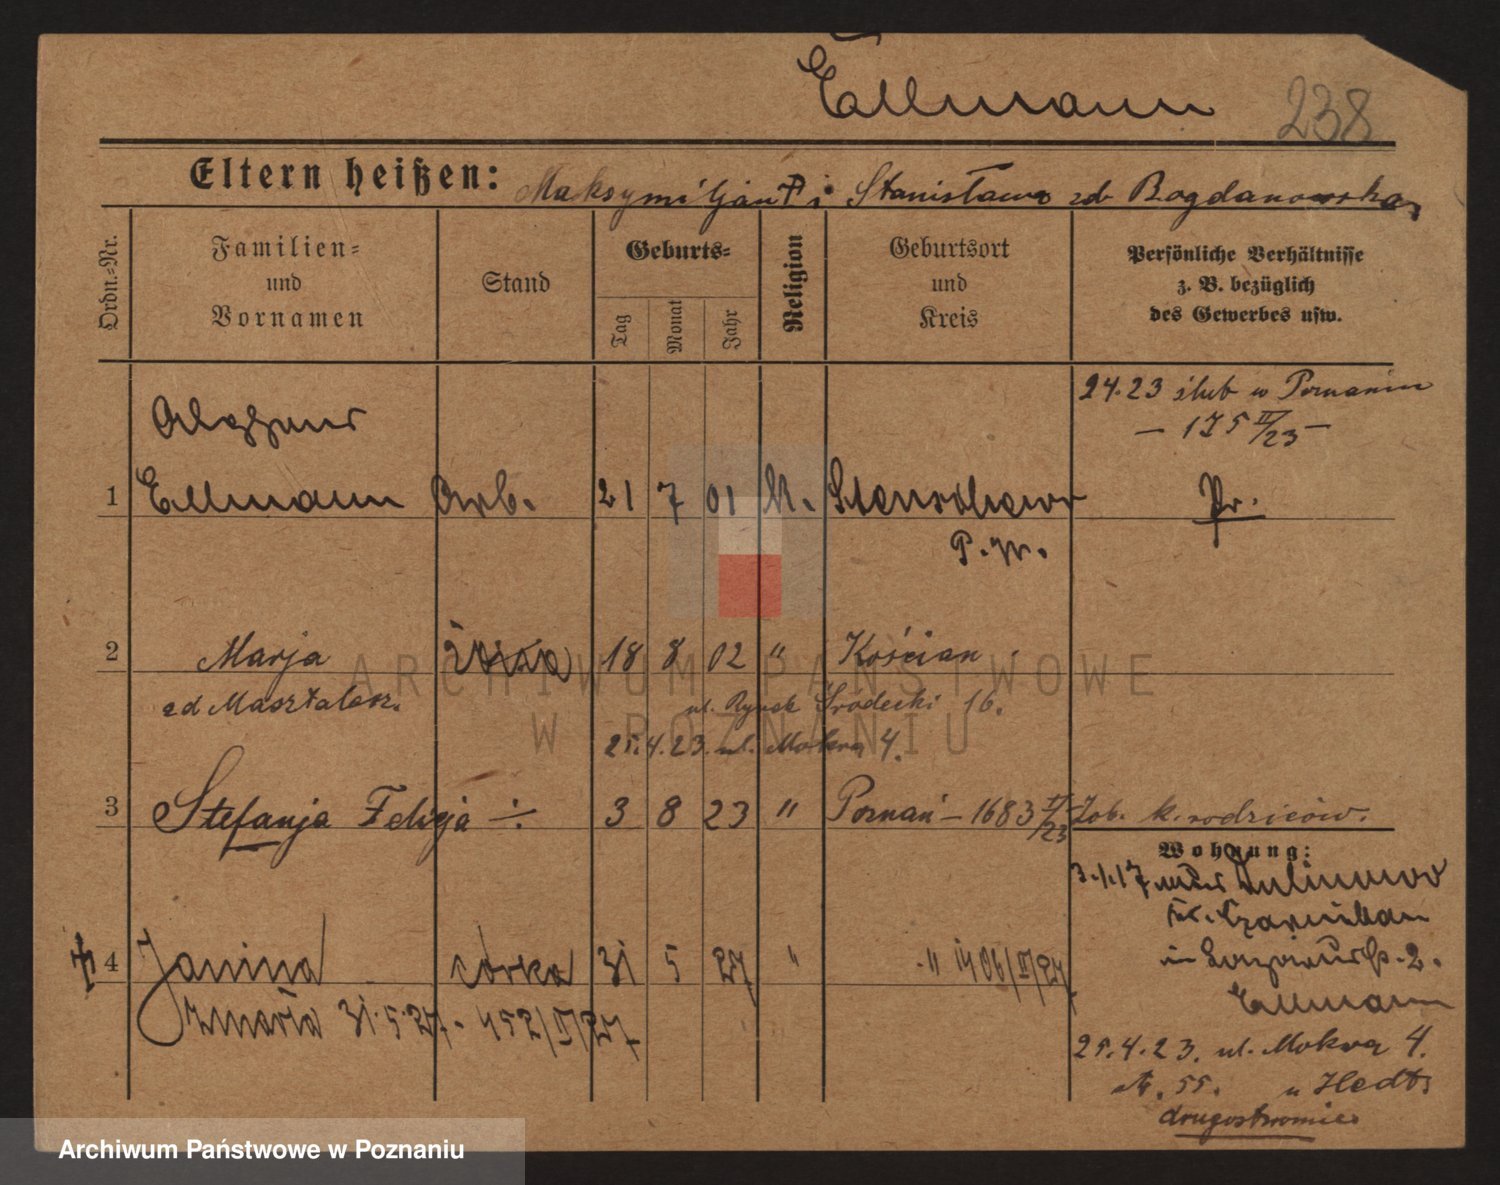 Ellmann 238
Eltern heißen: Maksymiljan i Stanisława zd Bogdanowska
Ordn.-Nr.
Familien-
und
Vornamen
Stand
Geburts-
Tag
Monat
Jahr
Religion
Geburtsort
und
Kreis
Persönliche Verhältnisse
z. B. bezüglich
des Gewerbes usw.
24.23 ślub w Poznaniu
– 175 II/23 –
1 Ellmann Arb. 21 7 01 K. Pr.
P. W.
2 Marja 18 8 02 " Kościan
zd Masztalerz. ul. Rynek Śródecki 16.
25.4.23. ul. Mokra 4.
3 Stefanja Felicja 3 8 23 " Poznań – 1683 II/23 Zob. k. rodziców.
Wohnung:
3.1.17
4 Janina córka 31 5 27 " " 1406/II/27
zmarła 31.5.27. 452/II/27
2.
Ellmann
25.4.23. ul. Mokra 4.
55. u Hedt
drugostronnie
ARCHIWUM PAŃSTWOWE
W POZNANIU
Archiwum Państwowe w Poznaniu